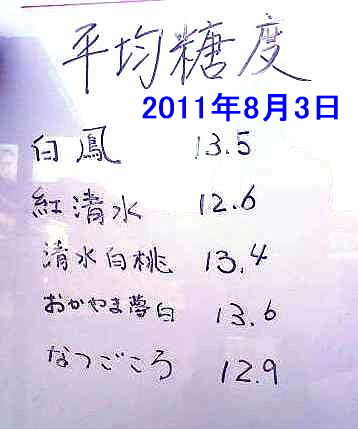 平均糖度
2011年8月3日
白鳳 13.5
紅清水 12.6
清水白桃 13.4
おかやま夢白 13.6
なつごころ 12.9